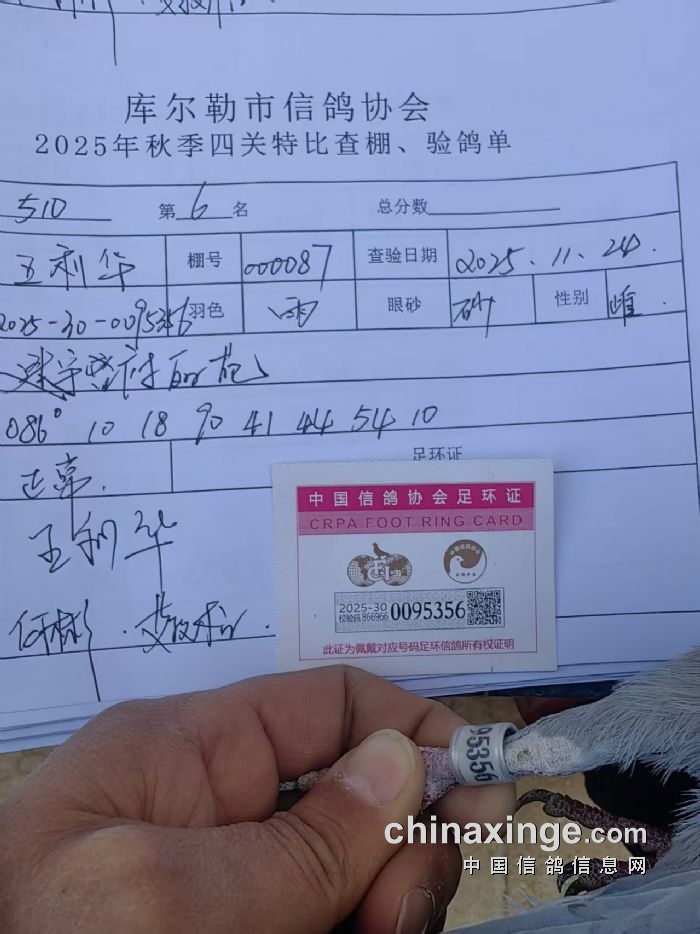 库尔勒市信鸽协会
2025年秋季四关特比查棚、验鸽单
510 第6名 总分数
王利华 棚号 000087 查验日期 2025.11.24.
2025-30-0095356 羽色 雨 眼砂 砂 性别 雌.
086° 10 18 90 41 44 54 10
正常. 足环证
王利华
中国信鸽协会足环证
CRPA FOOT RING CARD
中国信鸽协会
CRPA
2025-30
校验码 866966 0095356
此证为佩戴对应号码足环信鸽所有权证明
95356
chinaxinge.com
中国信鸽信息网